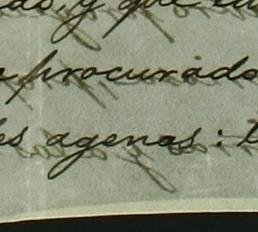 do, y que
procurado
es agenas: